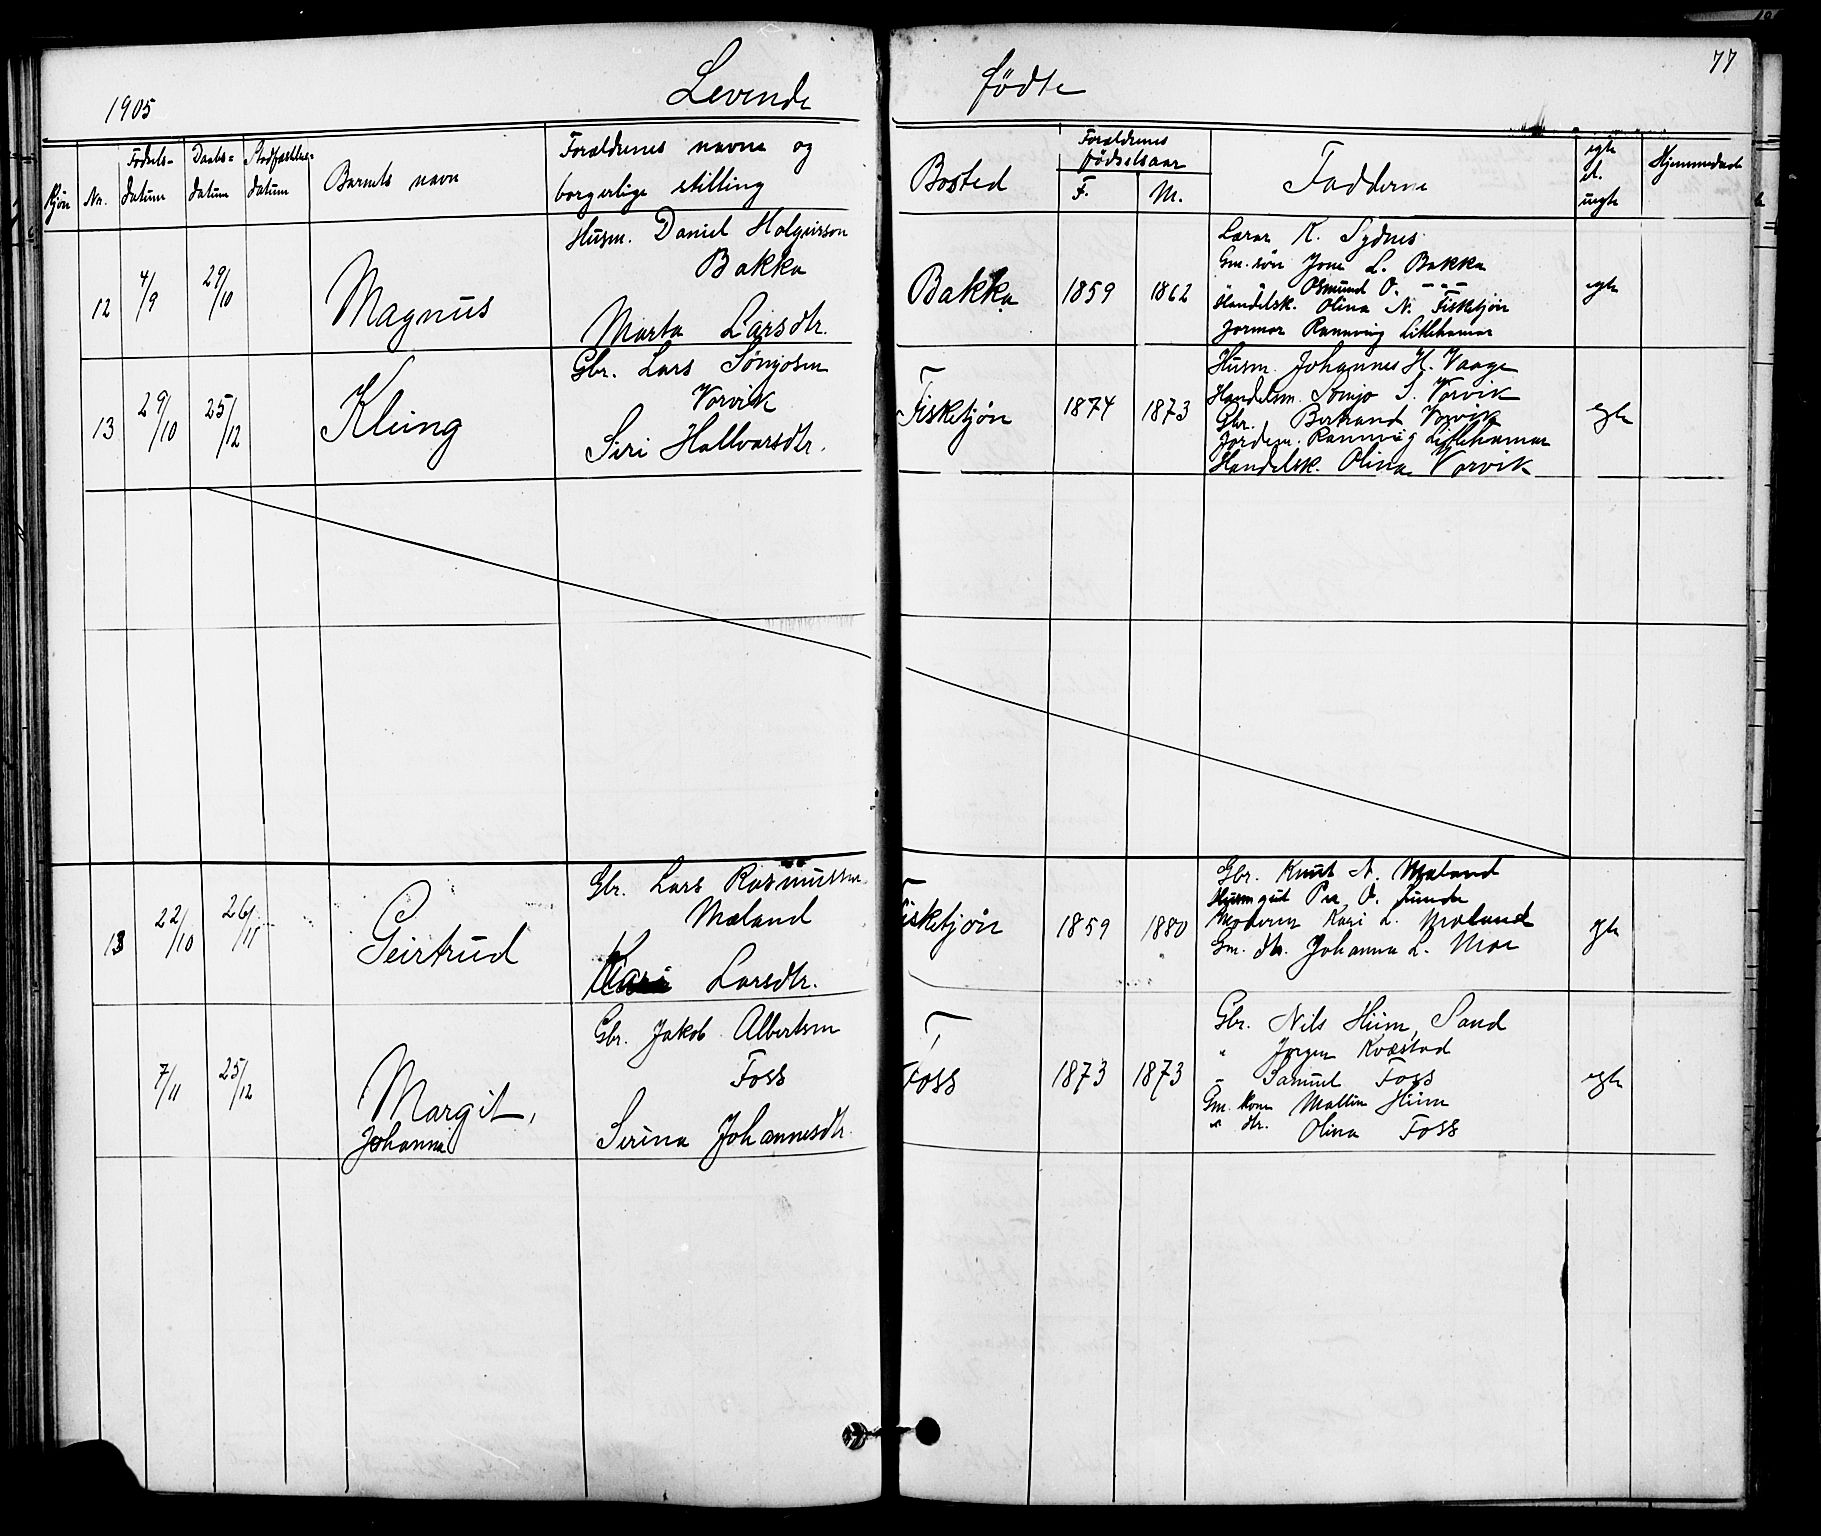 77
1905 Levende fødte
Kjøn Nr. Fødsels-datum Daabs-datum Stadfæstelses-datum Barnets navn Forældrenes navne og borgerlige stilling Bosted Forældrenes fødselsaar F. M. Fadderne egte el. uegte Hjemmedøbt
12 4/9 29/10 Magnus
Husm. Daniel Holgeirson
Bakka
Marta Larsdtr.
Bakka 1859 1862
Lærer K. Sydnes
Gm. søn Jone L. Bakka
" Osmund O. - " -
Handelsk. Olina N. Fisketjøn
Jormor Rannveig Littlehamar
egte
13 29/10 25/12 Kleing
Gbr. Lars Sønjosen
Vorvik
Siri Hallvarsdtr.
Fisketjøn 1874 1873
Husm. Johannes H. Vaage
Handelsm. Sønjo S. Vorvik
Gbr. Bertrand Vorvik
Jordem. Rannveig Littlehamar
Handelsk. Olina Vorvik
egte
13 22/10 26/11 Geirtrud
Gbr. Lars Rasmussen
Mæland
Kari Larsdtr.
Fisketjøn 1859 1880
Gbr. Knut A. Mæland
Husmgut Per O. Funde
Moderen Kari L. Mæland
Gm. dtr. Johanna L. Moe
egte
7/11 25/12 Margit,
Johanna
Gbr. Jakob Albertsen
Foss
Serina Johannesdtr.
Foss 1873 1873
Gbr. Nils Hiim, Sand
" Jørgen Kvæstad
" Samuel Foss
Gm. kone Mallin Hiim
" dtr. Olina Foss
egte